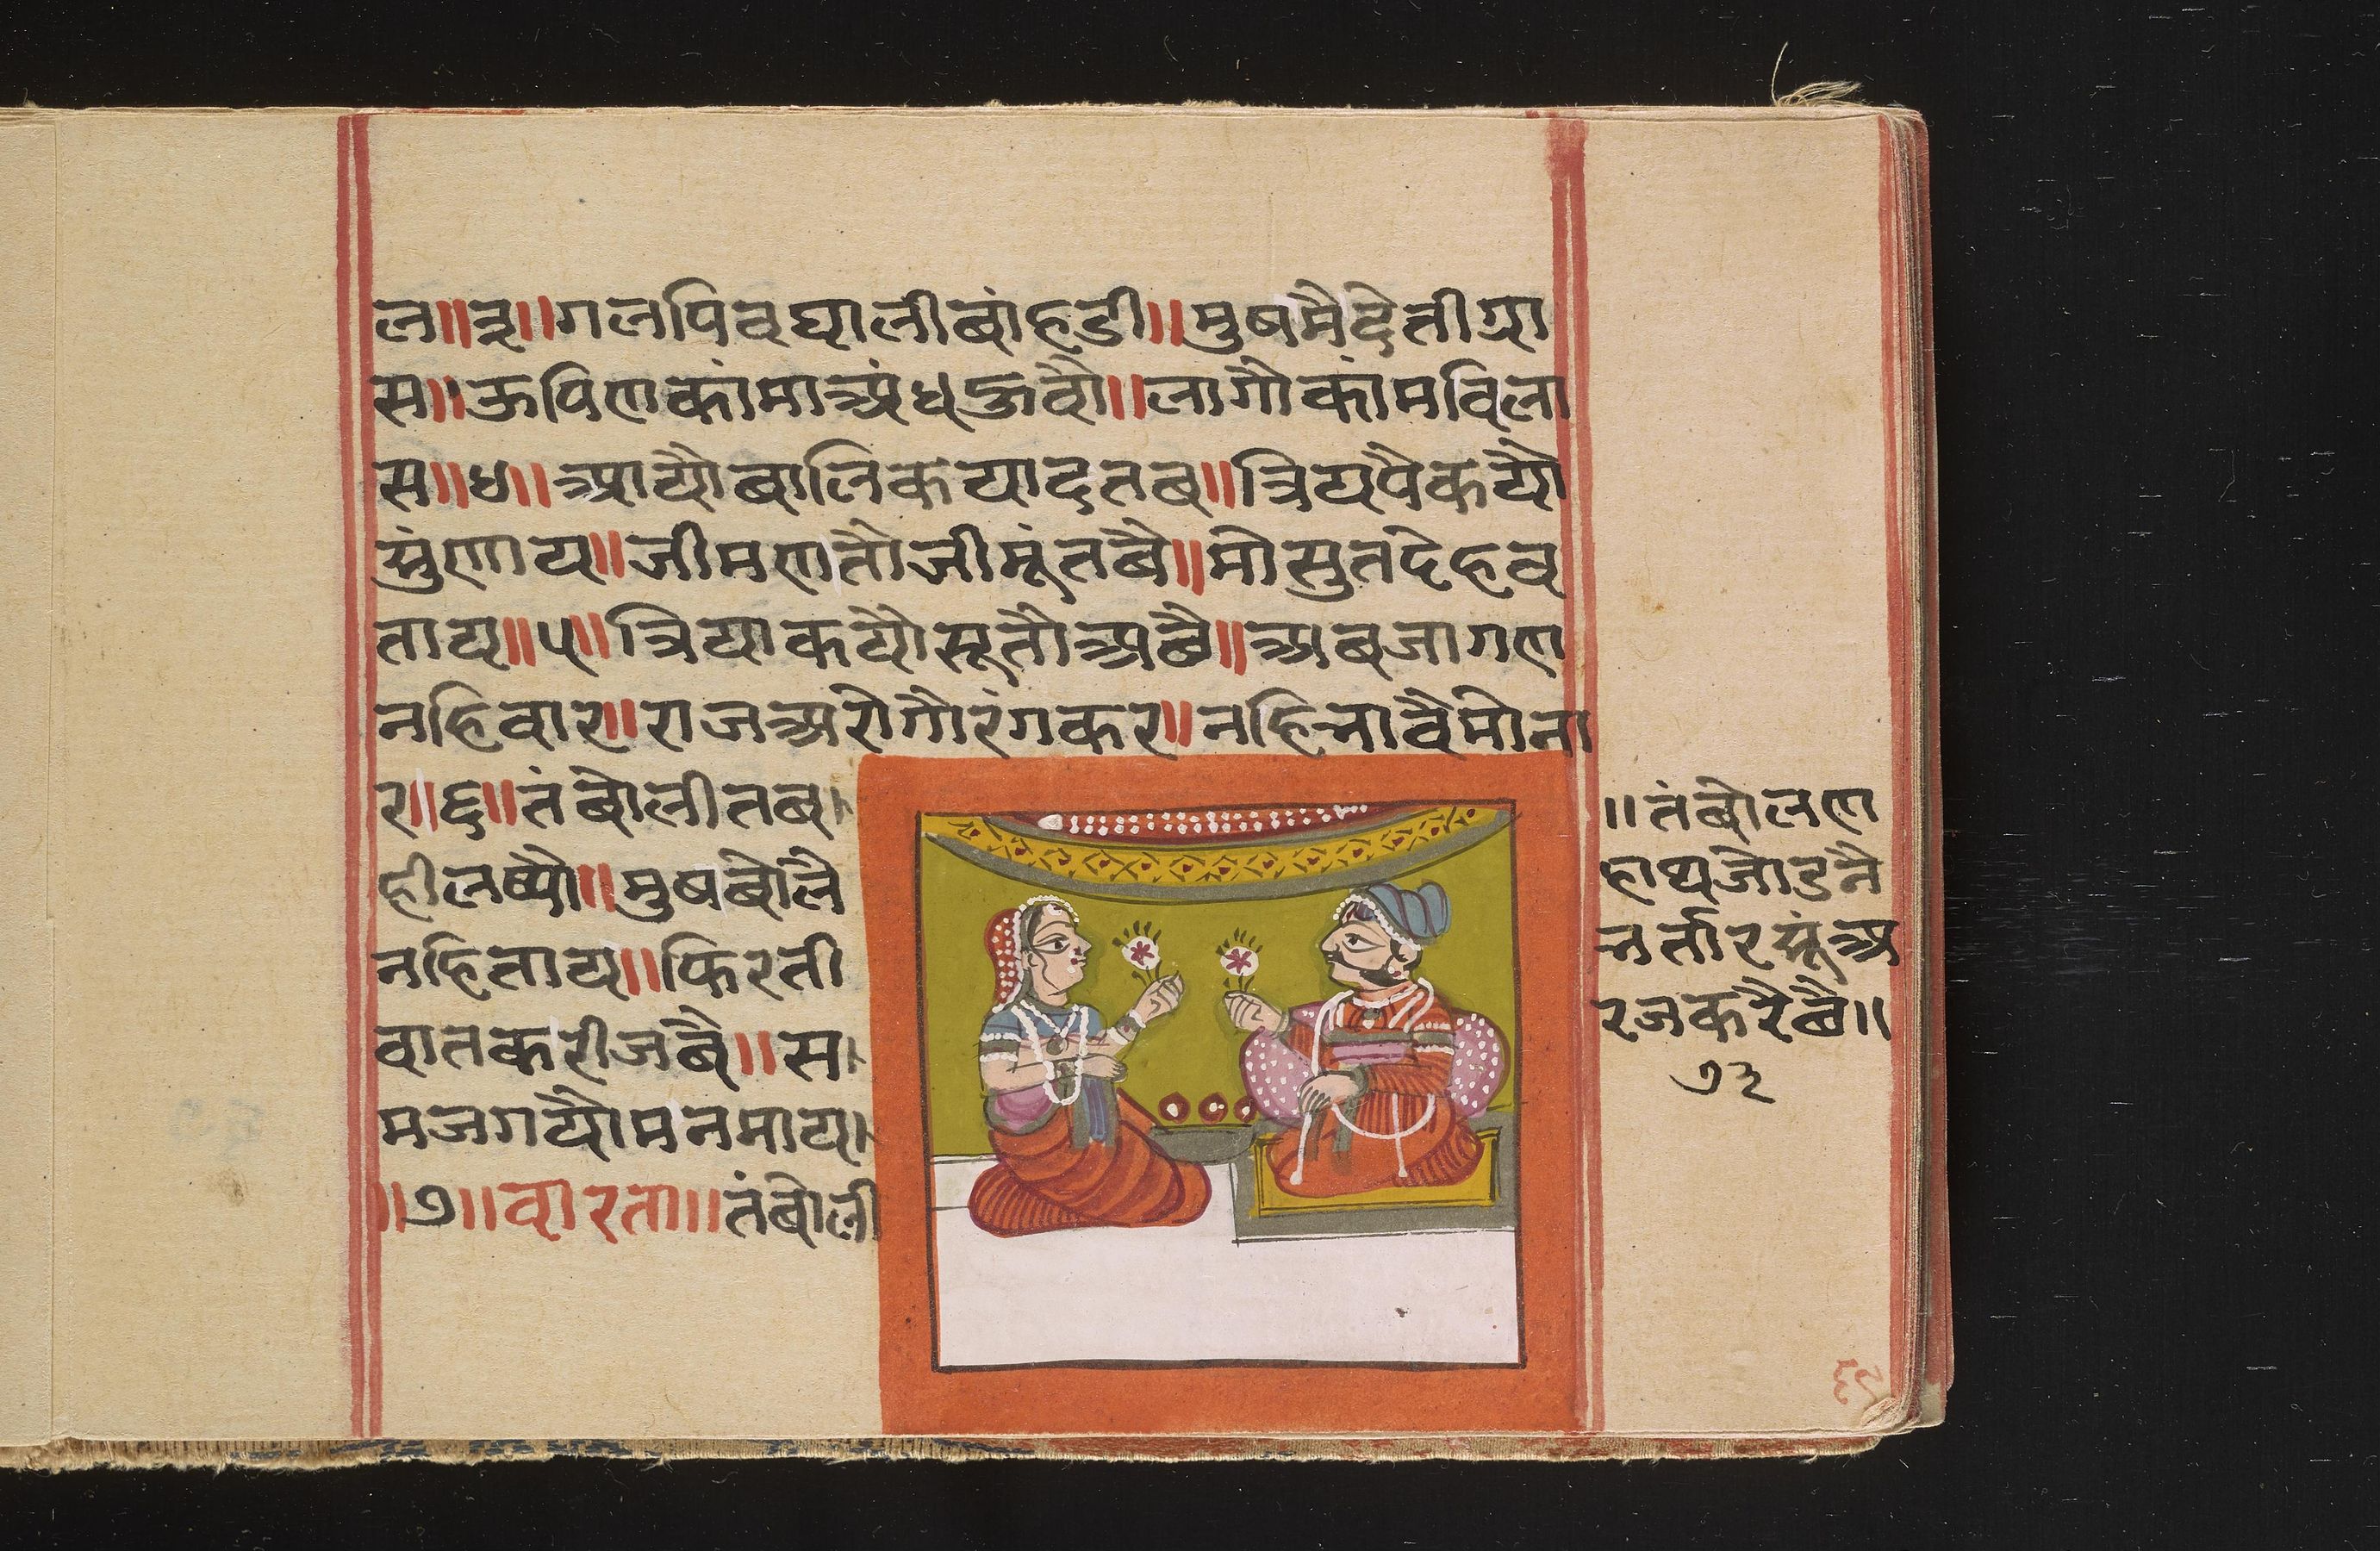 ल॥३॥गलपिवघालीबांहडी॥मुषमैदेतीग्रा
स॥ऊपिणकांमाअंधऊवौ॥लागौकांमविला
स॥४॥आयौबालिकयादतब॥त्रियपैकयौ
सुंणाय॥जीमणतौजीमूंतबै॥मोसुतदेहव
ताय॥५॥त्रियाकयौसूतौअबै॥अबजागण
नहिवार॥राजअरोगौरंगकर॥नहिनावैमोना
र॥६॥तंबोलीतब
हीलष्यौ॥मुषबोलै
नहिताय॥फिरती
वातकरीजबै॥स
मजगयौमनमाय।
॥७॥वारता॥तंबोली
॥तंबोलण
हाथजोडनै
नर्तारसूंअ
रजकरैबै॥
७३
६९